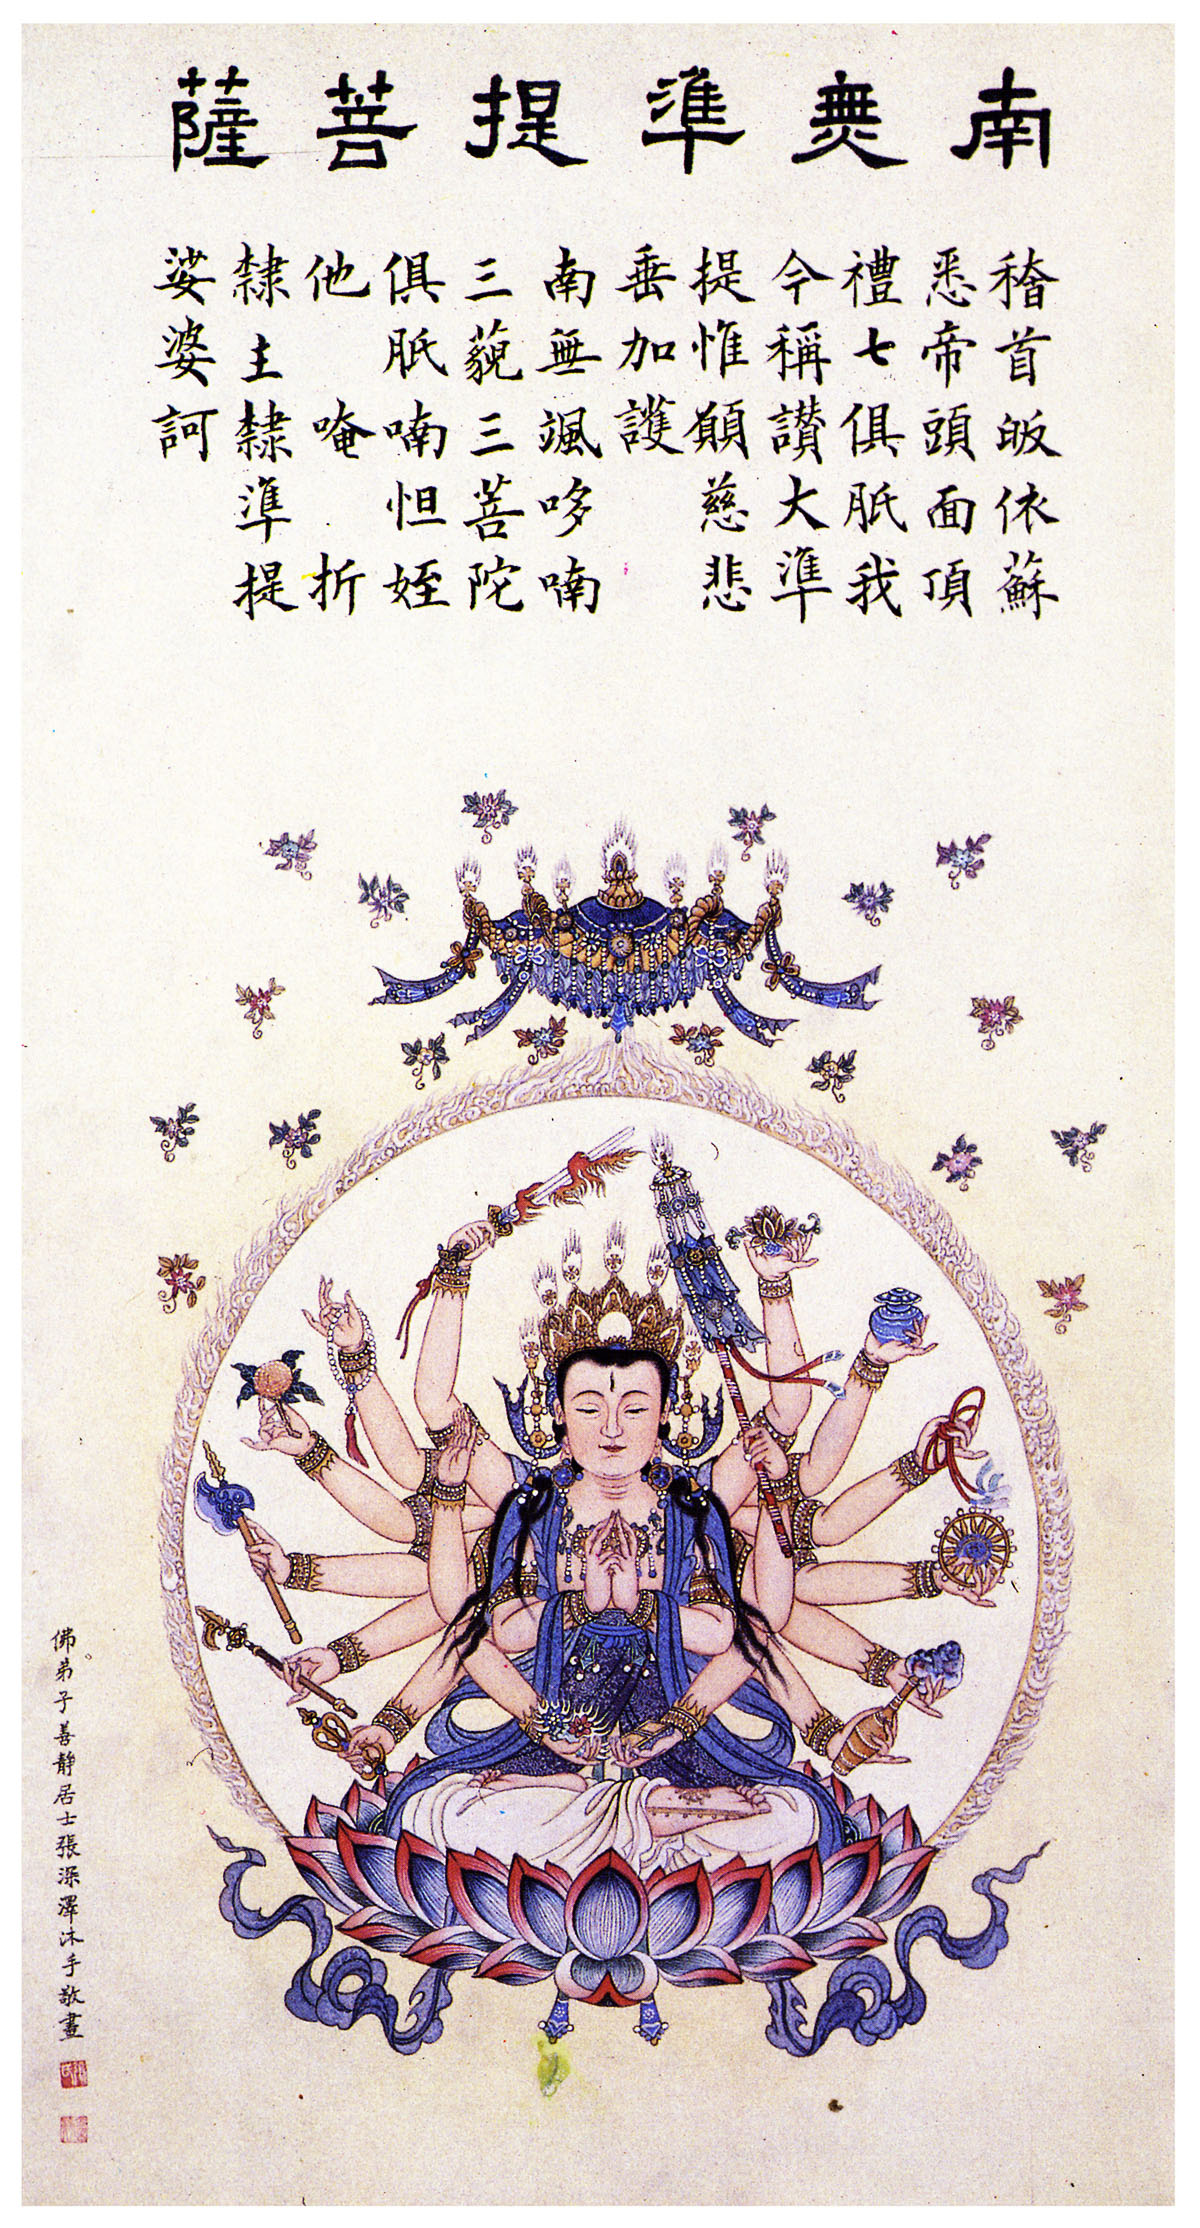 南無準提菩薩
稽首皈依蘇
悉帝頭面頂
禮七俱胝我
今稱讚大準
提惟願慈悲
垂加護
南無颯哆喃
三藐三菩陀
俱胝喃怛姪
他 唵 折
隸主隸準提
娑婆訶
佛弟子善静居士張深澤沐手敬畫